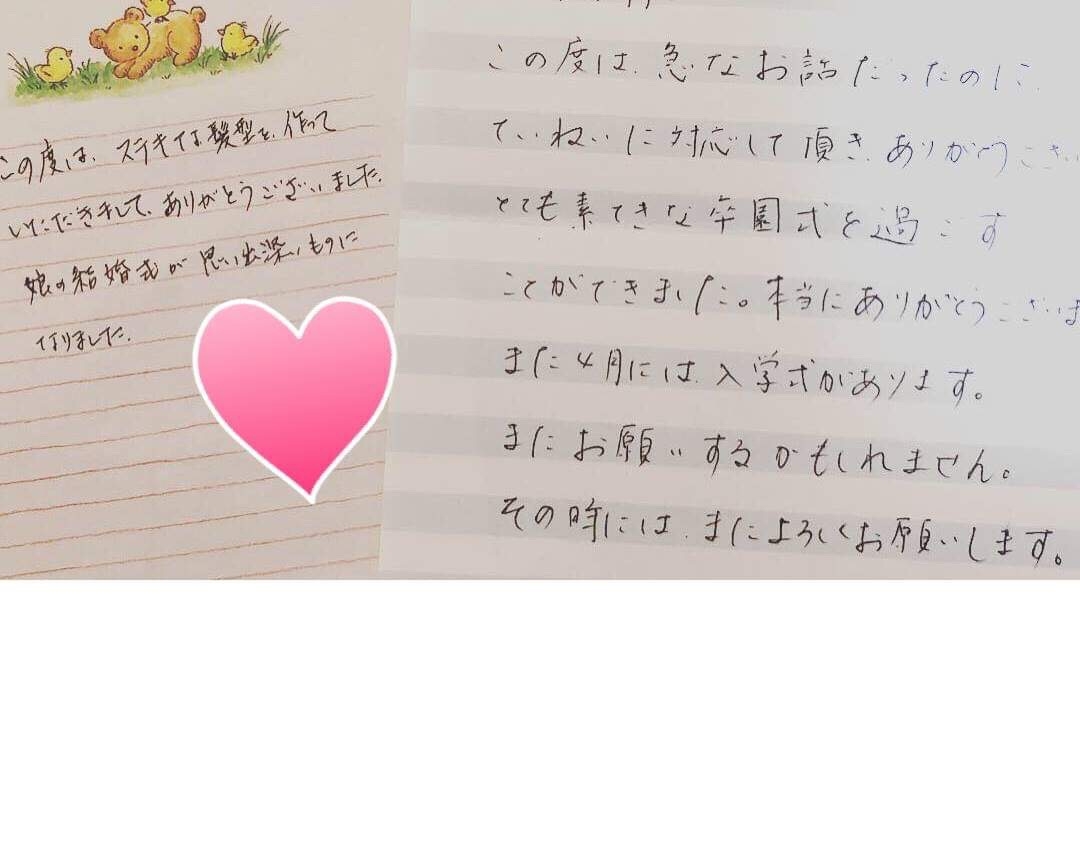 この度は、ステキな髪型を、作って
いただきまして、ありがとうございました。
娘の結婚式が思い出深いものに
なりました。
この度は、急なお話だったのに
ていねいに対応して頂き、ありがとうござい
とても素てきな卒園式を過ごす
ことができました。本当にありがとうございま
また4月には、入学式があります。
またお願いするかもしれません。
その時には、またよろしくお願いします。